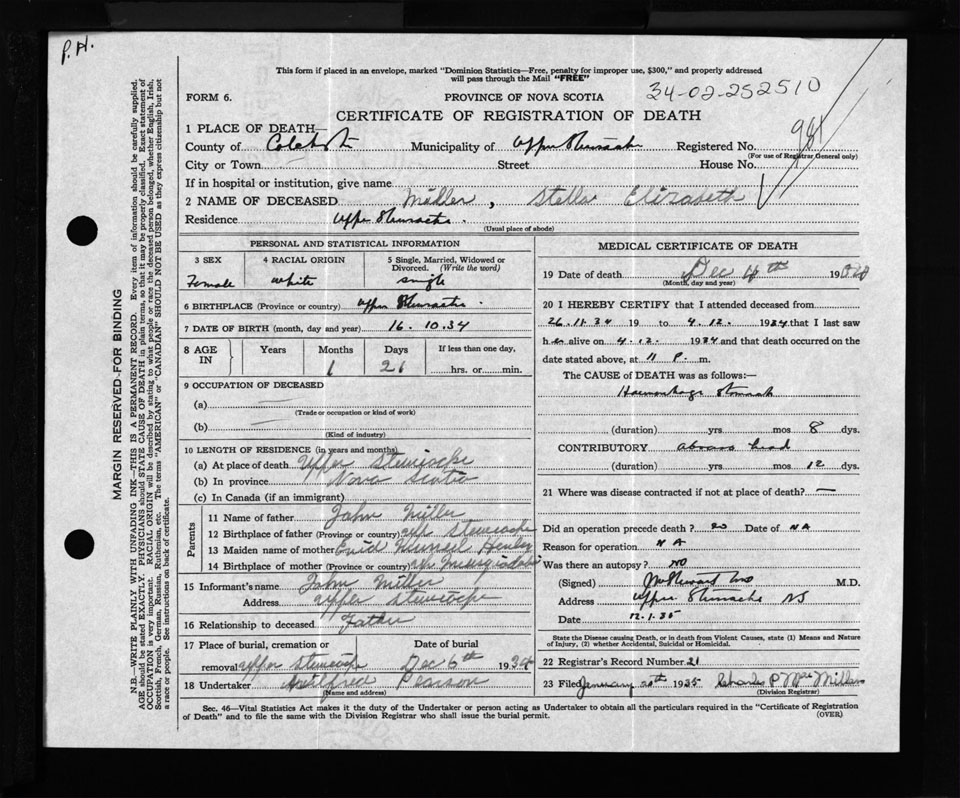 P.H.
This form if placed in an envelope, marked "Dominion Statistics—Free, penalty for improper use, $300," and properly addressed
will pass through the Mail "FREE"
FORM 6.
PROVINCE OF NOVA SCOTIA
34-02-252510
CERTIFICATE OF REGISTRATION OF DEATH
981
1 PLACE OF DEATH—
County of Municipality of Upper Registered No.
(For use of Registrar General only)
City or Town Street House No.
If in hospital or institution, give name
2 NAME OF DECEASED Miller, Stella Elizabeth
Residence Upper
(Usual place of abode)
PERSONAL AND STATISTICAL INFORMATION
3 SEX
Female
4 RACIAL ORIGIN
White
5 Single, Married, Widowed or Divorced. (Write the word)
Single
6 BIRTHPLACE (Province or country) Upper
7 DATE OF BIRTH (month, day and year) 16. 10. 34
8 AGE IN Years Months Days If less than one day,
1 21 hrs. or min.
9 OCCUPATION OF DECEASED
(a)
(Trade or occupation or kind of work)
(b)
(Kind of industry)
10 LENGTH OF RESIDENCE (in years and months)
(a) At place of death Upper
(b) In province Nova Scotia
(c) In Canada (if an immigrant)
Parents
11 Name of father John Miller
12 Birthplace of father (Province or country)
13 Maiden name of mother Enid
14 Birthplace of mother (Province or country)
15 Informant's name John Miller
Address Upper
16 Relationship to deceased Father
17 Place of burial, cremation or removal Upper Date of burial Dec 6th 1934
18 Undertaker Pearson
(Name and address)
MEDICAL CERTIFICATE OF DEATH
19 Date of death Dec 4th 19
(Month, day and year)
20 I HEREBY CERTIFY that I attended deceased from
26.11.34 19 to 4.12. 1934 that I last saw
h alive on 4.12. 1934 and that death occurred on the
date stated above, at 11 P. m.
The CAUSE of DEATH was as follows:
Haemorrhage Stomach
(duration) yrs. mos 8 dys.
CONTRIBUTORY head
(duration) yrs. mos 12 dys.
21 Where was disease contracted if not at place of death? —
Did an operation precede death? no Date of NA
Reason for operation NA
Was there an autopsy? NO
(Signed) M.D.
Address Upper NS
Date 12.1.35
State the Disease causing Death, or in death from Violent Causes, state (1) Means and Nature
of Injury, (2) whether Accidental, Suicidal or Homicidal.
22 Registrar's Record Number 21
23 Filed January 20th 1935 Charles P.
(Division Registrar)
Sec. 46—Vital Statistics Act makes it the duty of the Undertaker or person acting as Undertaker to obtain all the particulars required in the "Certificate of Registration
of Death" and to file the same with the Division Registrar who shall issue the burial permit.
(OVER)
MARGIN RESERVED FOR BINDING
N.B.—WRITE PLAINLY WITH UNFADING INK—THIS IS A PERMANENT RECORD. Every item of information should be carefully supplied.
AGE should be stated EXACTLY. PHYSICIANS should STATE CAUSE OF DEATH in plain terms, so that it may be properly classified. Exact statement of
OCCUPATION is very important. RACIAL ORIGIN will be described by stating to what people or race the deceased person belonged, whether English, Irish,
Scottish, French, German, Russian, Ruthenian, etc. The terms "AMERICAN" or "CANADIAN" SHOULD NOT BE USED as they express citizenship but not
a race or people. See instructions on back of certificate.